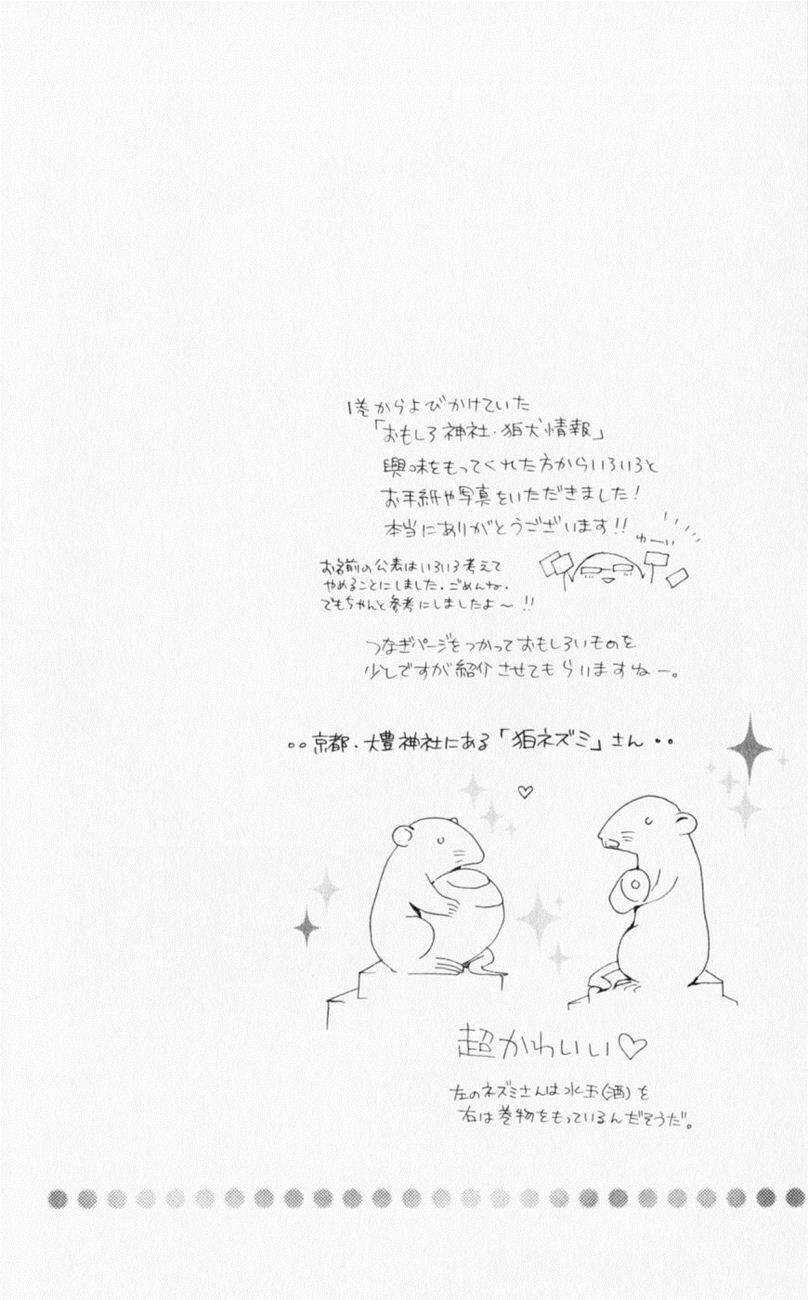 1巻からよびかけていた
「おもしろ神社・狛犬情報」
興味をもってくれた方からいろいろと
お手紙や写真をいただきました!
本当にありがとうございます!!
お名前の公表はいろいろ考えて
やめることにしました。ごめんね。
でもちゃんと参考にしましたよ～!!
つなぎページをつかっておもしろいものを
少しですが紹介させてもらいますねー。
••京都・大豊神社にある「狛ネズミ」さん••
♡
超かわいい♡
左のネズミさんは水玉(酒)を
右は巻物をもっているんだそうだ。